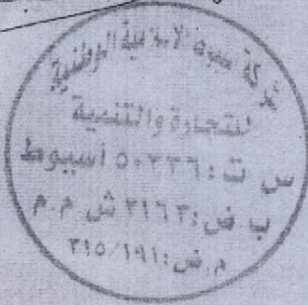 شركة صوت الاسلامية الوطنية
للتجارة والتنمية
س ت : ٥٠٢٣٦ أسيوط
ب ض : ٣١٦٣ ش م م
م . ض : ٣١٥/١٩١